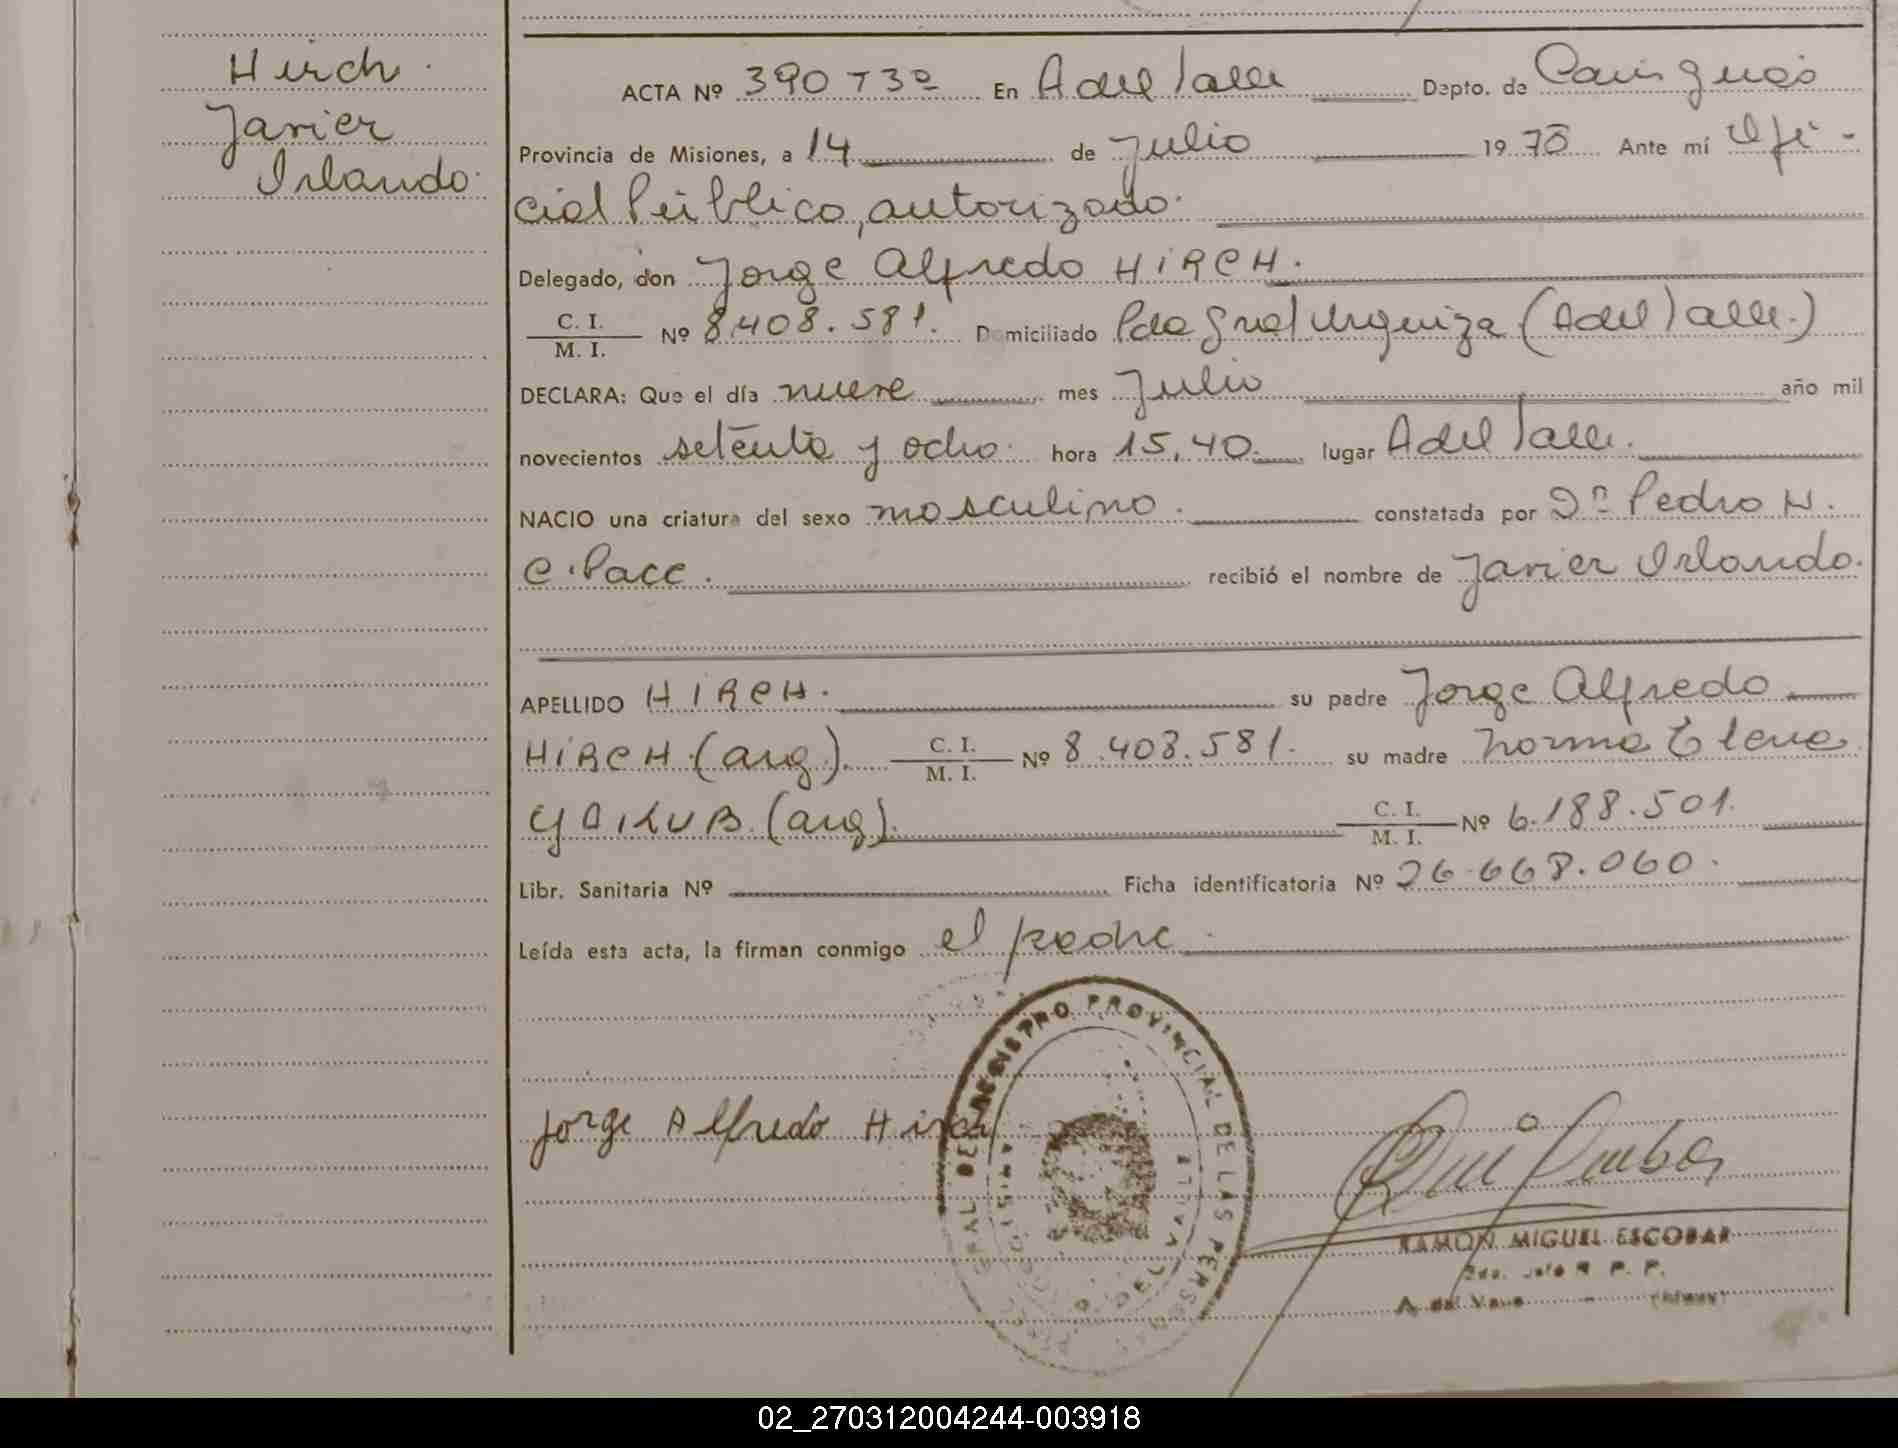 Hirch.
Javier
Orlando.
ACTA Nº 390 T3º En A del Valle Depto. de Cainguás
Provincia de Misiones, a 14 de Julio 19 78 Ante mí Ofi-
cial Público, autorizado.
Delegado, don Jorge Alfredo HIRCH.
C. I.
M. I.
Nº 8.408.581. Domiciliado Pda Gral Urquiza (A del Valle.)
DECLARA: Que el día nueve mes Julio año mil
novecientos setenta y ocho. hora 15,40. lugar A del Valle.
NACIO una criatura del sexo masculino. constatada por Dº Pedro H.
C. Pace. recibió el nombre de Javier Orlando.
APELLIDO HIRCH. su padre Jorge Alfredo
HIRCH (arg). C. I.
M. I.
Nº 8.408.581. su madre Norma Elena
YAIKUB (arg). C. I.
M. I.
Nº 6.188.501.
Libr. Sanitaria Nº Ficha identificatoria Nº 26.668.060.
Leída esta acta, la firman conmigo el padre.
REGISTRO PROVINCIAL DE LAS PERSONAS
Jorge Alfredo Hirch
RAMON MIGUEL ESCOBAR
R. P. P.
A. del Valle
02_270312004244-003918